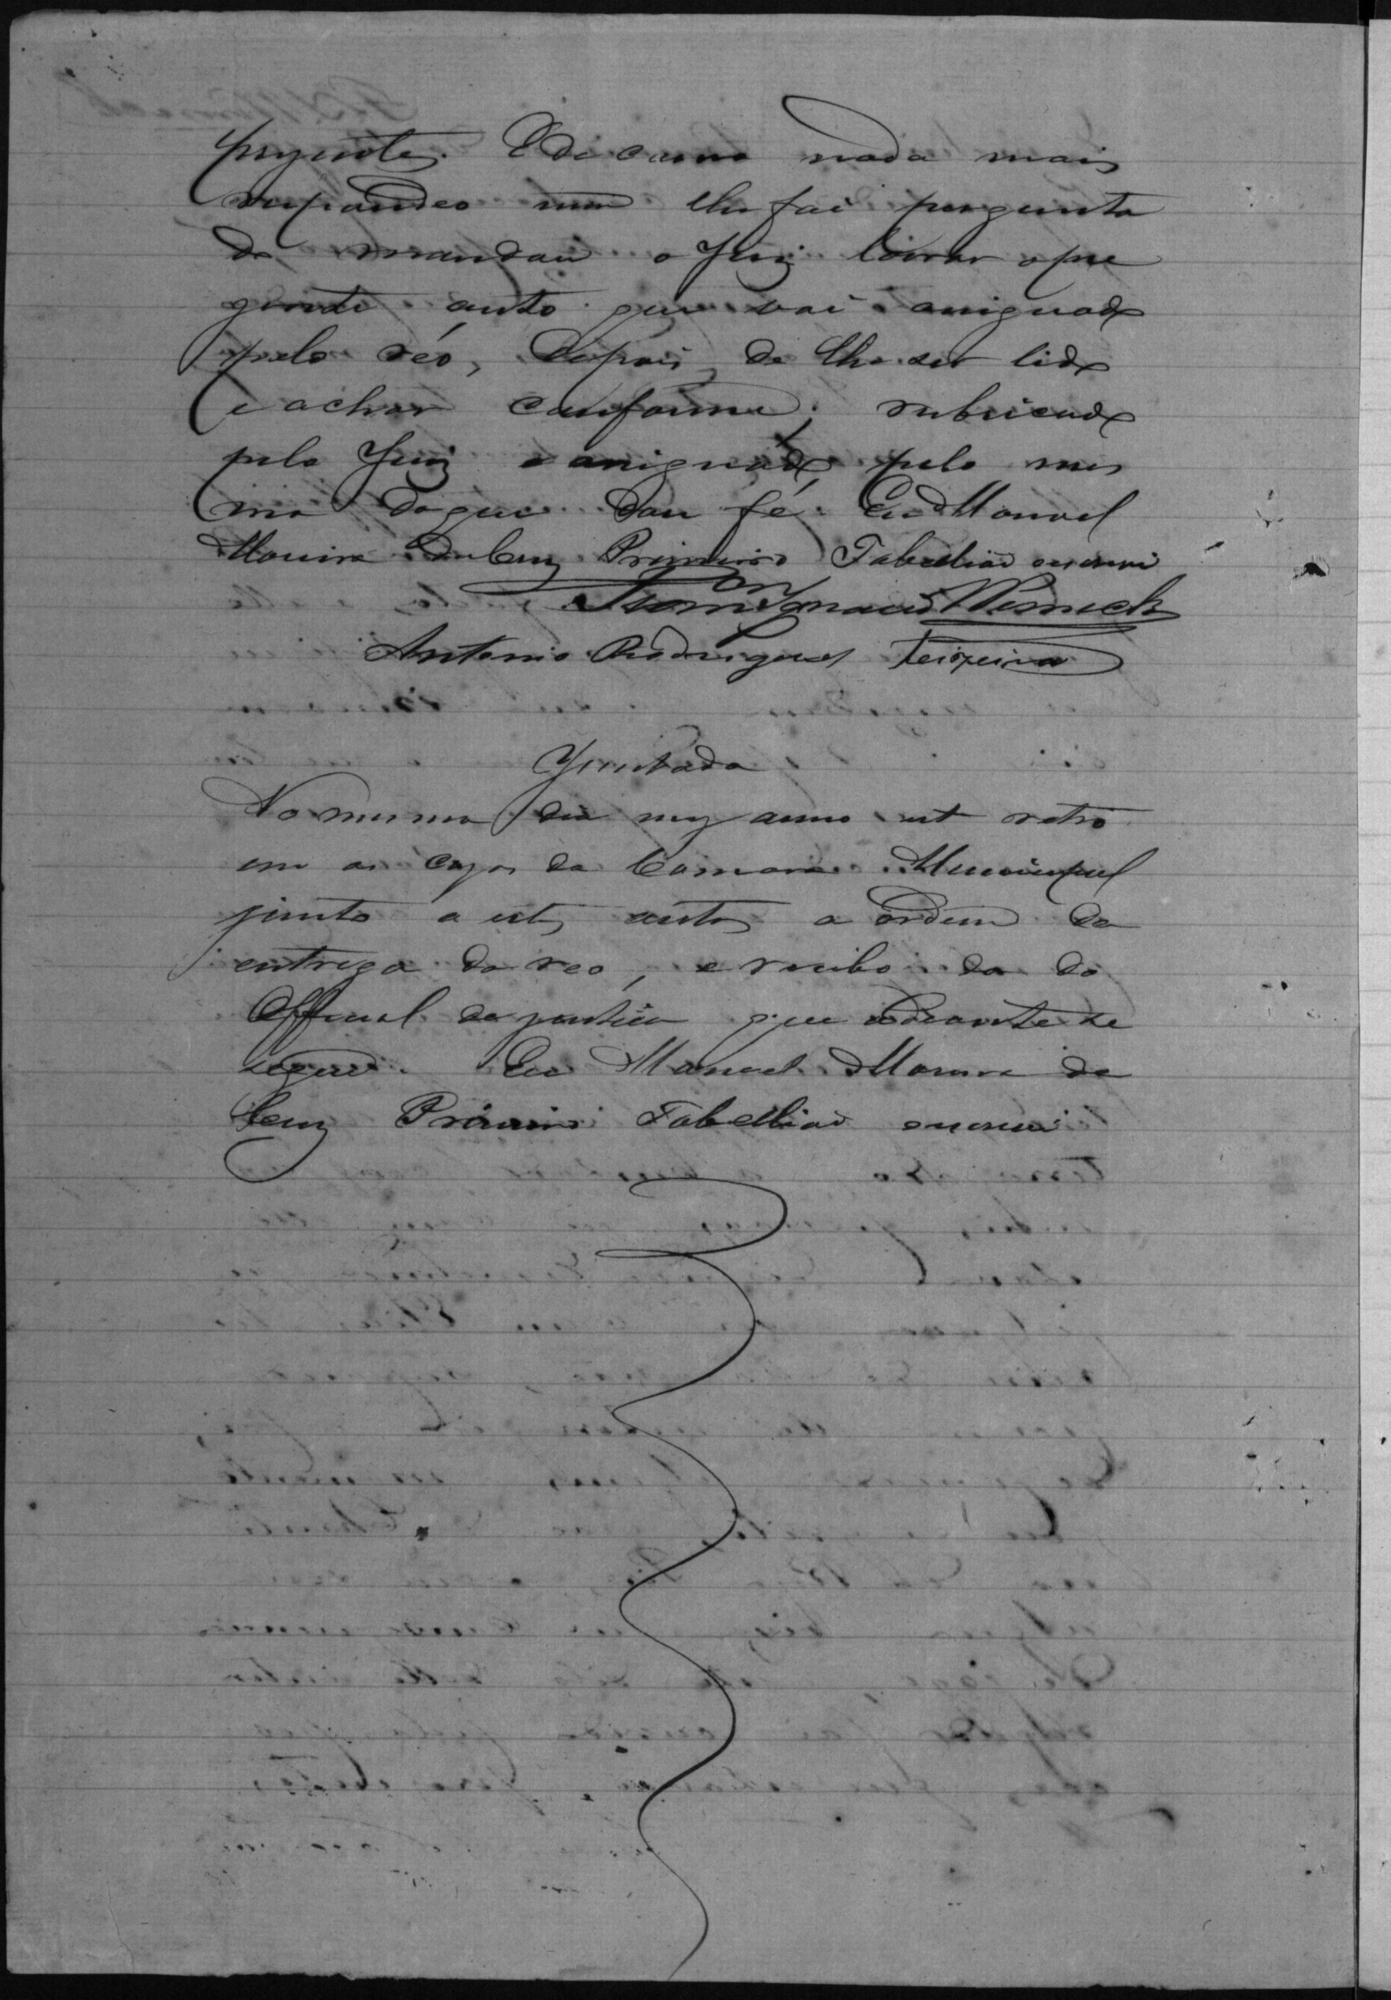 E de como nada mais
respondeo nem lhe foi pergunta
do mandou o Juiz lavrar o pre
zente auto que vai assignado
pelo réo, depois de lhe ser lido
e achar conforme, rubricado
pelo Juiz e assignado pelo mes
mo do que dou fé. Eu Manoel
Moreira da Cruz Primeiro Tabellião escrevi
Antonio Rodrigues Teixeira
Juntada
No mesmo dia mez anno ut retro
em as Cazas da Camara Municipal
junto a estes autos a ordem da
entrega do reo, e recibo da do
Official de justiça que adeante se
segue. Eu Manoel Moreira da
Cruz Primeiro Tabellião escrevi